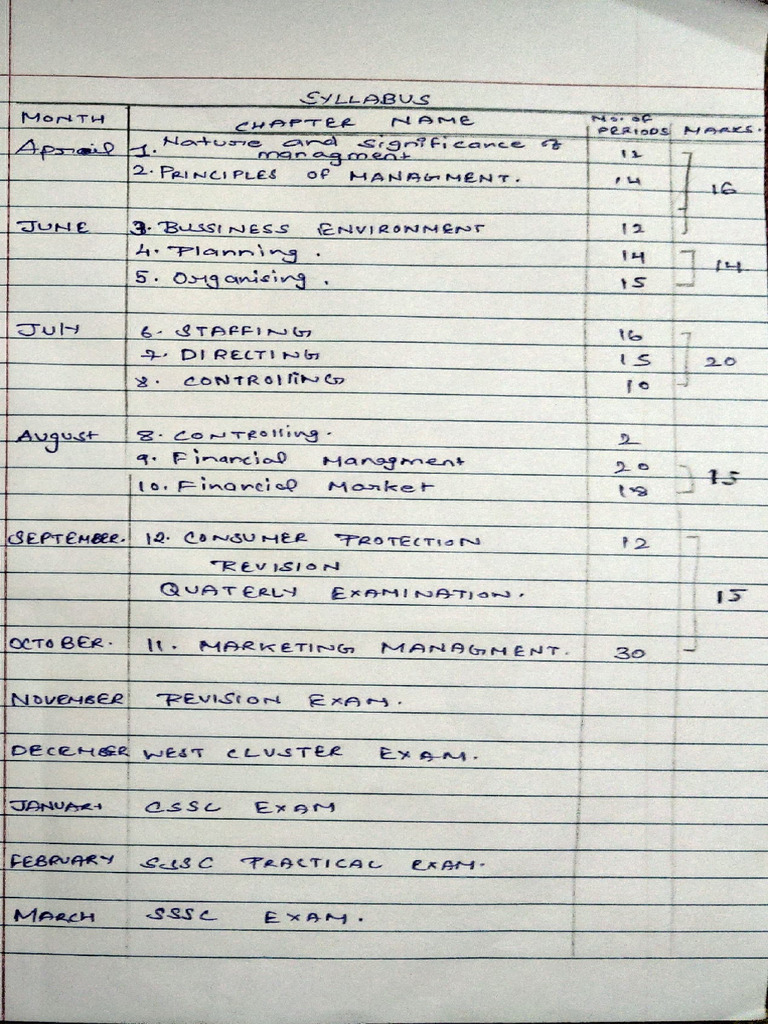 SYLLABUS
MONTH CHAPTER NAME No. OF PERIODS MARKS.
April 1. Nature and significance of managment 12
2. PRINCIPLES OF MANAGMENT. 14 16
JUNE 3. BUSSINESS ENVIRONMENT 12
4. Planning. 14 14
5. Organising. 15
JULY 6. STAFFING 16
7. DIRECTING 15 20
8. CONTROLLING 10
AUGUST 8. CONTROLLING. 2
9. Financial Managment 20 15
10. Financial Market 18
SEPTEMBER. 12. CONSUMER PROTECTION 12
REVISION
QUATERLY EXAMINATION. 15
OCTOBER. 11. MARKETING MANAGMENT. 30
NOVEMBER REVISION EXAM.
DECEMBER WEST CLUSTER EXAM.
JANUARY CSSC EXAM
FEBRUARY SSSC PRACTICAL EXAM.
MARCH SSSC EXAM.